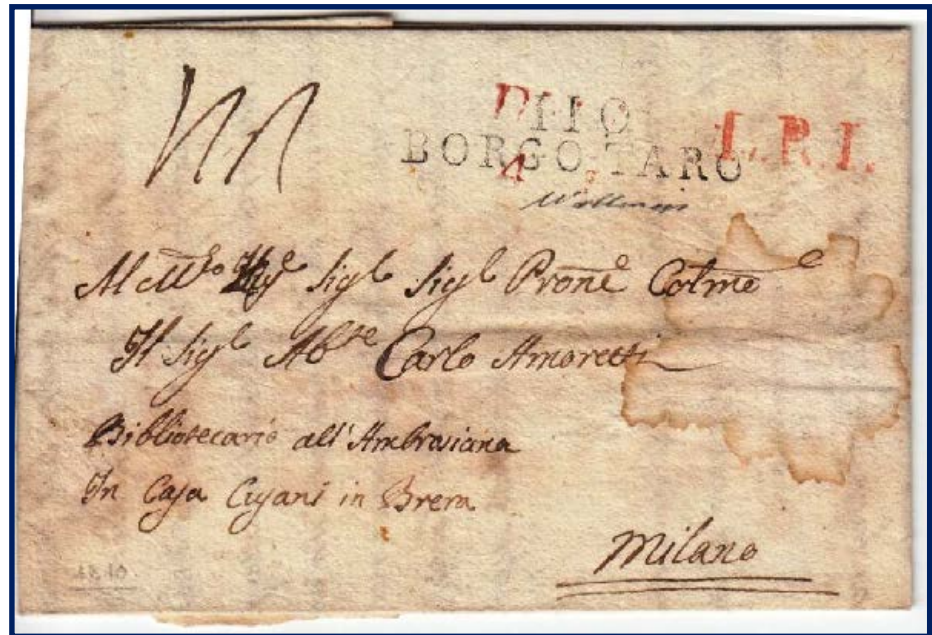 110
BORGO-TARO
L.P.I.
4
Sigl Sigl Prone Colme
Il Sigl Abte Carlo Amoretti
Bibliotecario all'Ambrosiana
In Casa Cusani in Brera
Milano
1810